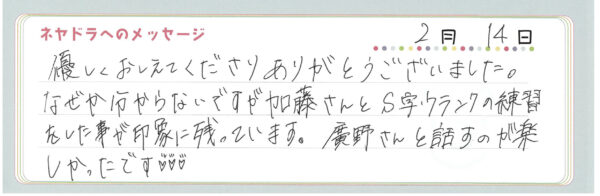 ネヤドラへのメッセージ 2月 14日
優しくおしえてくださりありがとうございました。
なぜか分からないですが加藤さんとS字・クランクの練習
をした事が印象に残っています。廣野さんと話すのが楽
しかったです♡♡♡